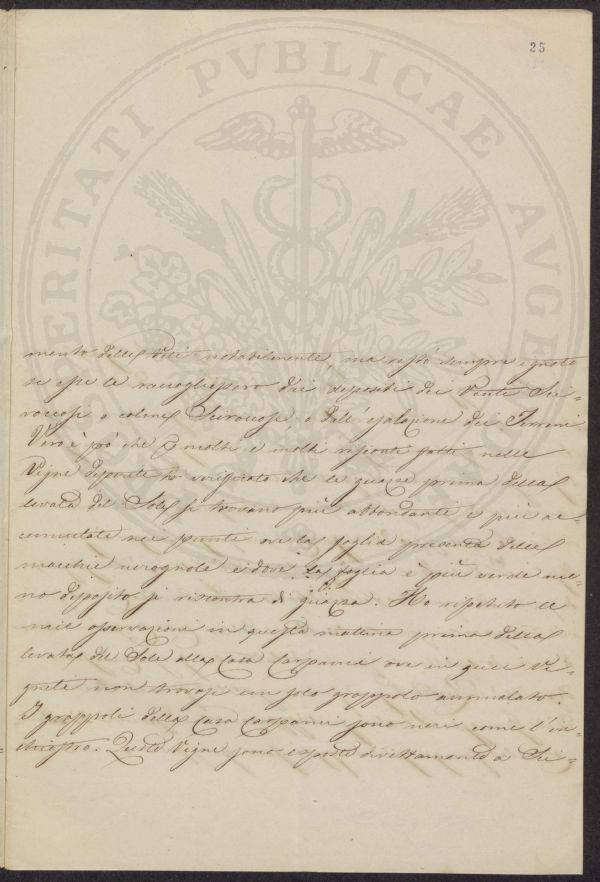 25
PROSPERITATI PVBLICAE AVGE
mento delle viti notabilmente, ma restò sempre ignoto
se esse le raccogliessero dai depositi dei Venti Sci=
roccosi o colonne Scirocose o dall'esalazione dei Terreni
Vero è però che molti e molti riposte fatti nelle
Vigne esposte ho verificato che le guazze prima della
levata del Sole si trovano più abbondante e più ac=
cumulate nei punti ove la foglia presenta delle
macchie nerognole e dove la foglia è più verde me=
no deposito si riscontra di guazza. Ho ripetuto le
osservazioni in questa materia prima della
levata del Sole alla Casa Carpanè ove in quei Vi=
gneti non trovasi un solo grappolo ammalato.
I grappoli della Casa Carpanè sono neri come l'in=
chiostro. Queste Vigne sono esposte direttamente a Sci=